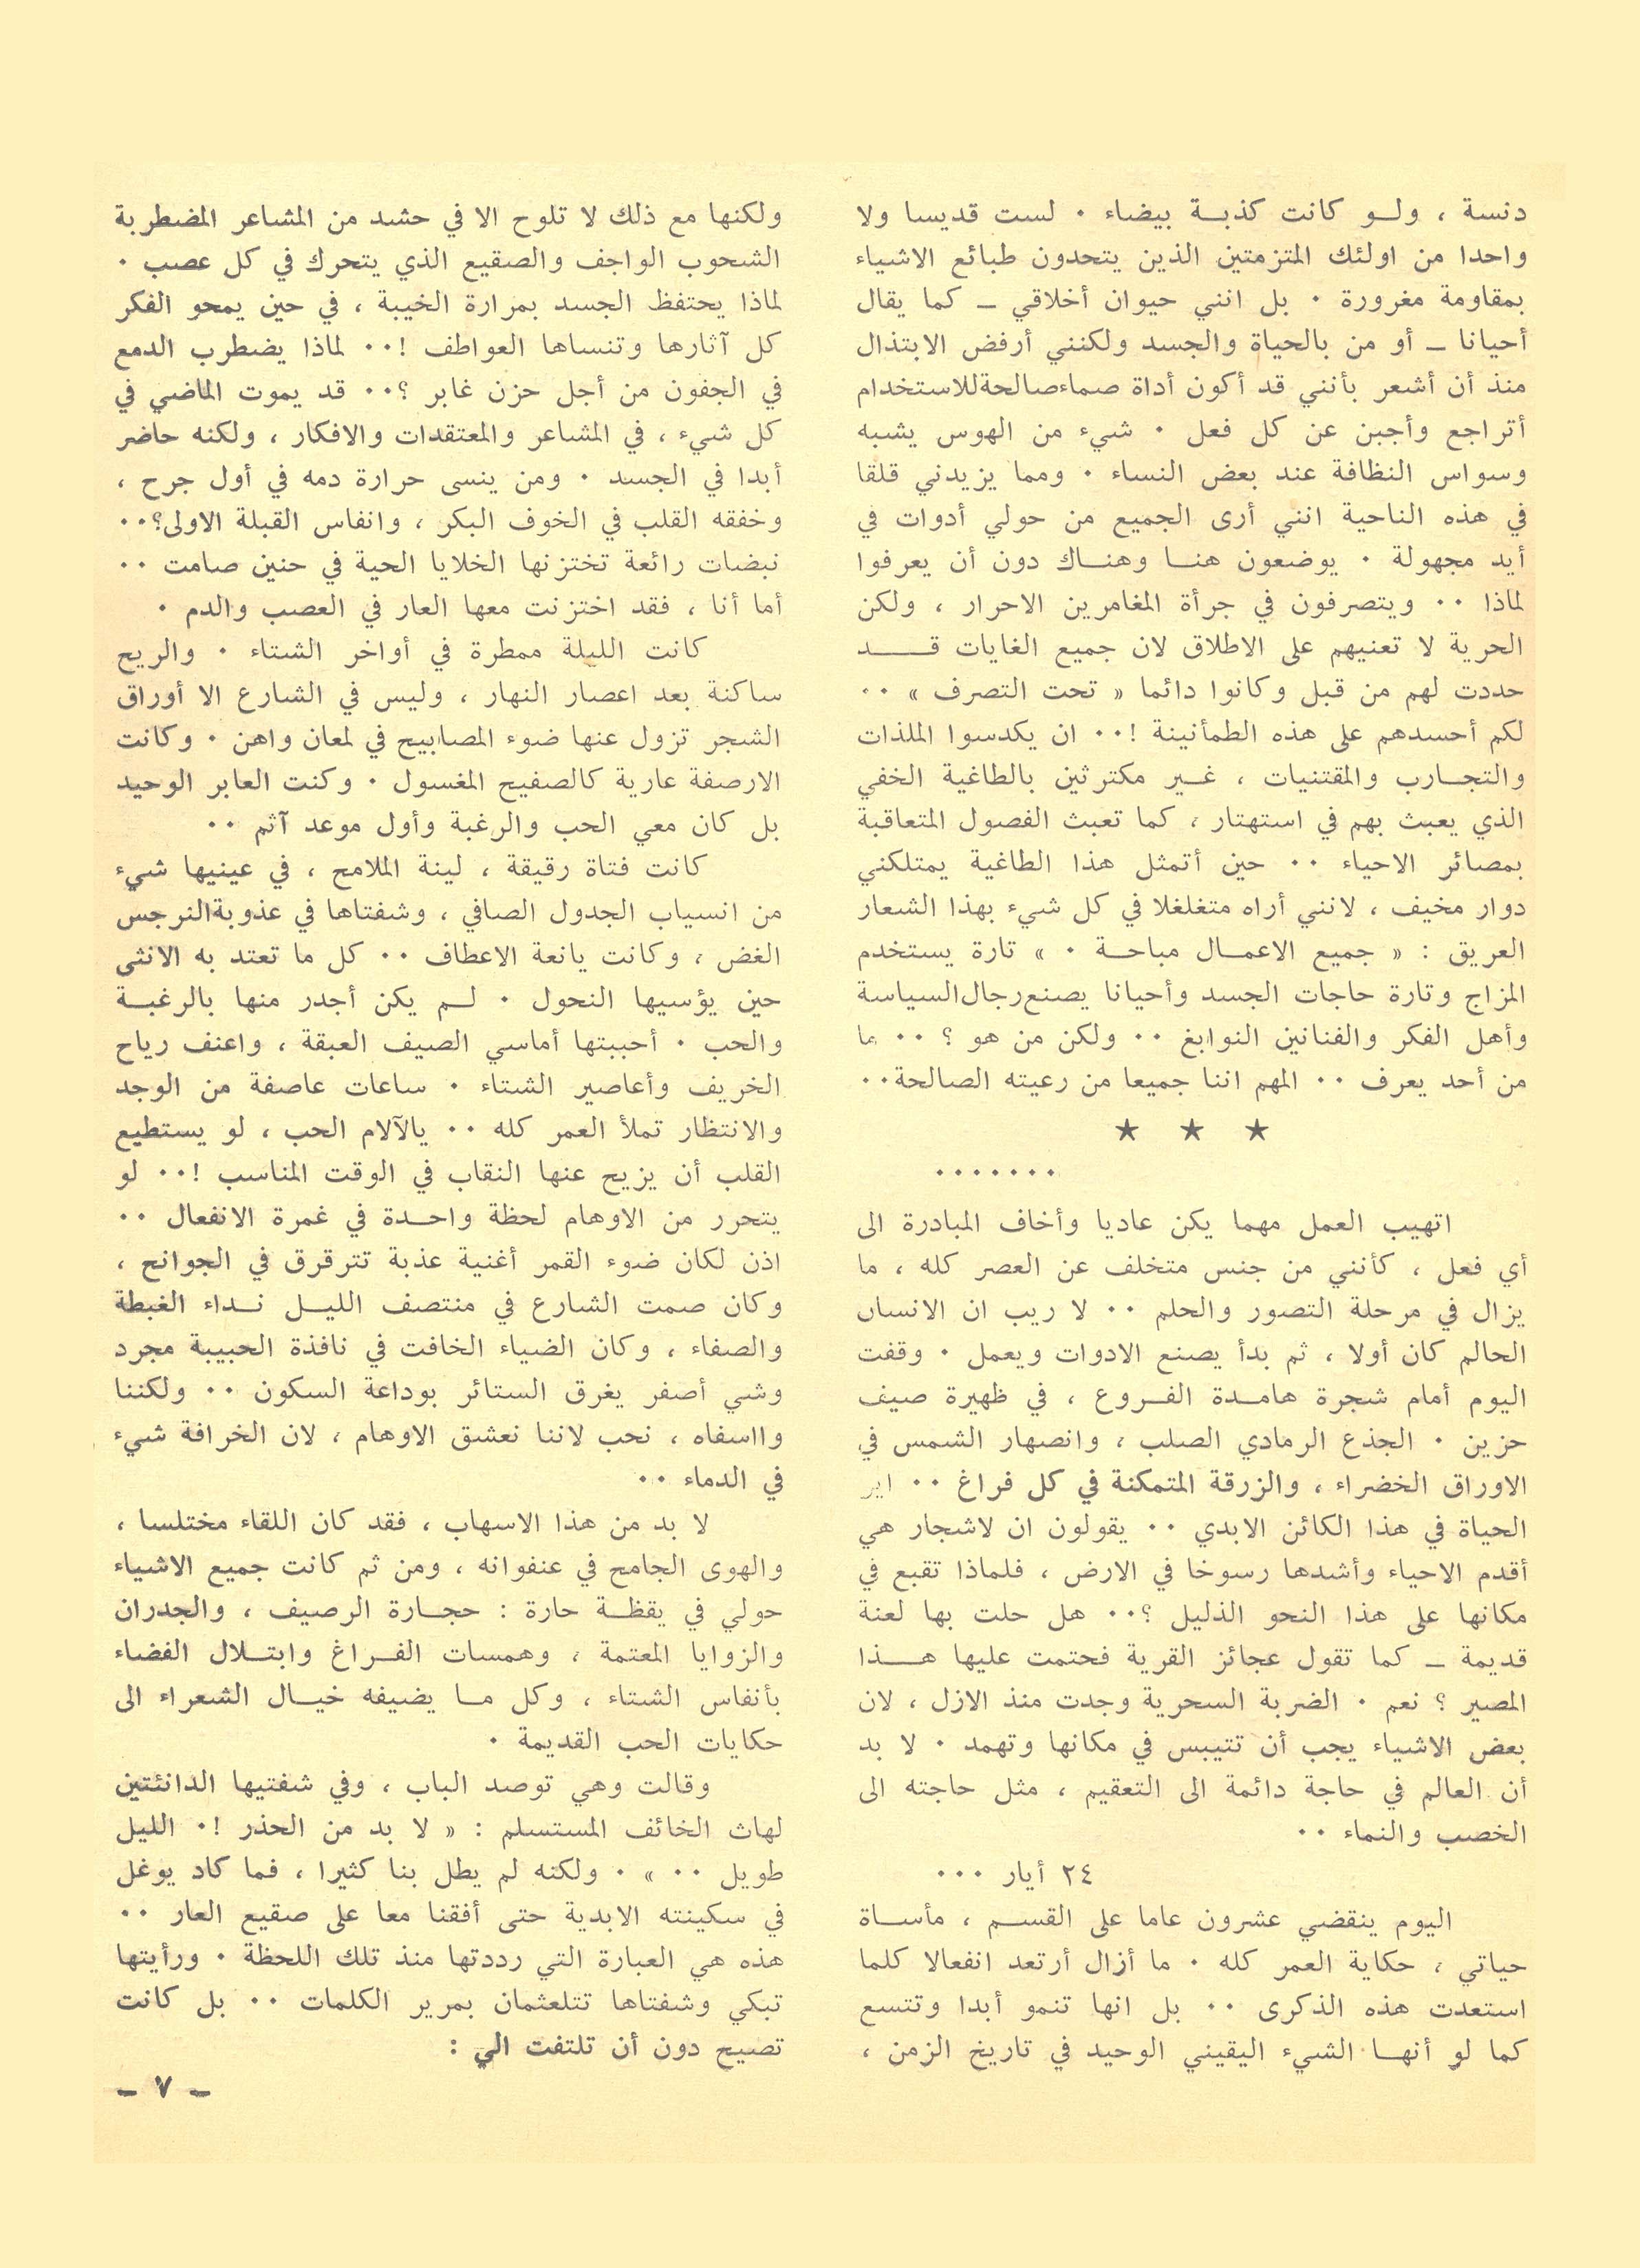 دنسة ، ولو كانت كذبة بيضاء . لست قديسا ولا
واحدا من اولئك المتزمتين الذين يتحدون طبائع الاشياء
بمقاومة مغرورة . بل انني حيوان أخلاقي – كما يقال
أحيانا – أو من بالحياة والجسد ولكنني أرفض الابتذال
منذ أن أشعر بأنني قد أكون أداة صماء صالحة للاستخدام
أتراجع وأجبن عن كل فعل . شيء من الهوس يشبه
وسواس النظافة عند بعض النساء . ومما يزيدني قلقا
في هذه الناحية انني أرى الجميع من حولي أدوات في
أيد مجهولة . يوضعون هنا وهناك دون أن يعرفوا
لماذا .. ويتصرفون في جرأة المغامرين الاحرار ، ولكن
الحرية لا تعنيهم على الاطلاق لان جميع الغايات قد
حددت لهم من قبل وكانوا دائما « تحت التصرف » ..
لكم أحسدهم على هذه الطمأنينة !.. ان يكدسوا الملذات
والتجارب والمقتنيات ، غير مكترثين بالطاغية الخفي
الذي يعبث بهم في استهتار ، كما تعبث الفصول المتعاقبة
بمصائر الاحياء .. حين أتمثل هذا الطاغية يمتلكني
دوار مخيف ، لانني أراه متغلغلا في كل شيء بهذا الشعار
العريق : « جميع الاعمال مباحة . » تارة يستخدم
المزاج وتارة حاجات الجسد وأحيانا يصنع رجال السياسة
وأهل الفكر والفنانين النوابغ .. ولكن من هو ؟ .. ما
من أحد يعرف .. المهم اننا جميعا من رعيته الصالحة ..
★ ★ ★
.......
اتهيب العمل مهما يكن عاديا وأخاف المبادرة الى
أي فعل ، كأنني من جنس متخلف عن العصر كله ، ما
يزال في مرحلة التصور والحلم .. لا ريب ان الانسان
الحالم كان أولا ، ثم بدأ يصنع الادوات ويعمل . وقفت
اليوم أمام شجرة هامدة الفروع ، في ظهيرة صيف
حزين . الجذع الرمادي الصلب ، وانصهار الشمس في
الاوراق الخضراء ، والزرقة المتمكنة في كل فراغ ..
الحياة في هذا الكائن الابدي .. يقولون ان لاشجار هي
أقدم الاحياء وأشدها رسوخا في الارض ، فلماذا تقبع في
مكانها على هذا النحو الذليل ؟.. هل حلت بها لعنة
قديمة – كما تقول عجائز القرية فحتمت عليها هذا
المصير ؟ نعم . الضربة السحرية وجدت منذ الازل ، لان
بعض الاشياء يجب أن تتيبس في مكانها وتهمد . لا بد
أن العالم في حاجة دائمة الى التعقيم ، مثل حاجته الى
الخصب والنماء ..
٢٤ أيار ...
اليوم ينقضي عشرون عاما على القسم ، مأساة
حياتي ، حكاية العمر كله . ما أزال أرتعد انفعالا كلما
استعدت هذه الذكرى .. بل انها تنمو أبدا وتتسع
كما لو أنها الشيء اليقيني الوحيد في تاريخ الزمن ،
ولكنها مع ذلك لا تلوح الا في حشد من المشاعر المضطربة
الشحوب الواجف والصقيع الذي يتحرك في كل عصب .
لماذا يحتفظ الجسد بمرارة الخيبة ، في حين يمحو الفكر
كل آثارها وتنساها العواطف !.. لماذا يضطرب الدمع
في الجفون من أجل حزن غابر ؟.. قد يموت الماضي في
كل شيء ، في المشاعر والمعتقدات والافكار ، ولكنه حاضر
أبدا في الجسد . ومن ينسى حرارة دمه في أول جرح ،
وخفقه القلب في الخوف البكر ، وانفاس القبلة الاولى؟..
نبضات رائعة تختزنها الخلايا الحية في حنين صامت ..
أما أنا ، فقد اختزنت معها العار في العصب والدم .
كانت الليلة ممطرة في أواخر الشتاء . والريح
ساكنة بعد اعصار النهار ، وليس في الشارع الا أوراق
الشجر تزول عنها ضوء المصابيح في لمعان واهن . وكانت
الارصفة عارية كالصفيح المغسول . وكنت العابر الوحيد
بل كان معي الحب والرغبة وأول موعد آثم ..
كانت فتاة رقيقة ، لينة الملامح ، في عينيها شيء
من انسياب الجدول الصافي ، وشفتاها في عذوبة النرجس
الغض ، وكانت يانعة الاعطاف .. كل ما تعتد به الانثى
حين يؤسيها النحول . لم يكن أجدر منها بالرغبة
والحب . أحببتها أماسي الصيف العبقة ، واعنف رياح
الخريف وأعاصير الشتاء . ساعات عاصفة من الوجد
والانتظار تملأ العمر كله .. يالآلام الحب ، لو يستطيع
القلب أن يزيح عنها النقاب في الوقت المناسب !.. لو
يتحرر من الاوهام لحظة واحدة في غمرة الانفعال ..
اذن لكان ضوء القمر أغنية عذبة تترقرق في الجوانح ،
وكان صمت الشارع في منتصف الليل نداء الغبطة
والصفاء ، وكان الضياء الخافت في نافذة الحبيبة مجرد
وشي أصفر يغرق الستائر بوداعة السكون .. ولكننا
وااسفاه ، نحب لاننا نعشق الاوهام ، لان الخرافة شيء
في الدماء ..
لا بد من هذا الاسهاب ، فقد كان اللقاء مختلسا ،
والهوى الجامح في عنفوانه ، ومن ثم كانت جميع الاشياء
حولي في يقظة حارة : حجارة الرصيف ، والجدران
والزوايا المعتمة ، وهمسات الفراغ وابتلال الفضاء
بأنفاس الشتاء ، وكل ما يضيفه خيال الشعراء الى
حكايات الحب القديمة .
وقالت وهي توصد الباب ، وفي شفتيها الدانئتين
لهاث الخائف المستسلم : « لا بد من الحذر !. الليل
طويل .. » . ولكنه لم يطل بنا كثيرا ، فما كاد يوغل
في سكينته الابدية حتى أفقنا معا على صقيع العار ..
هذه هي العبارة التي رددتها منذ تلك اللحظة . ورأيتها
تبكي وشفتاها تتلعثمان بمرير الكلمات .. بل كانت
تصيح دون أن تلتفت الي :
– ٧ –